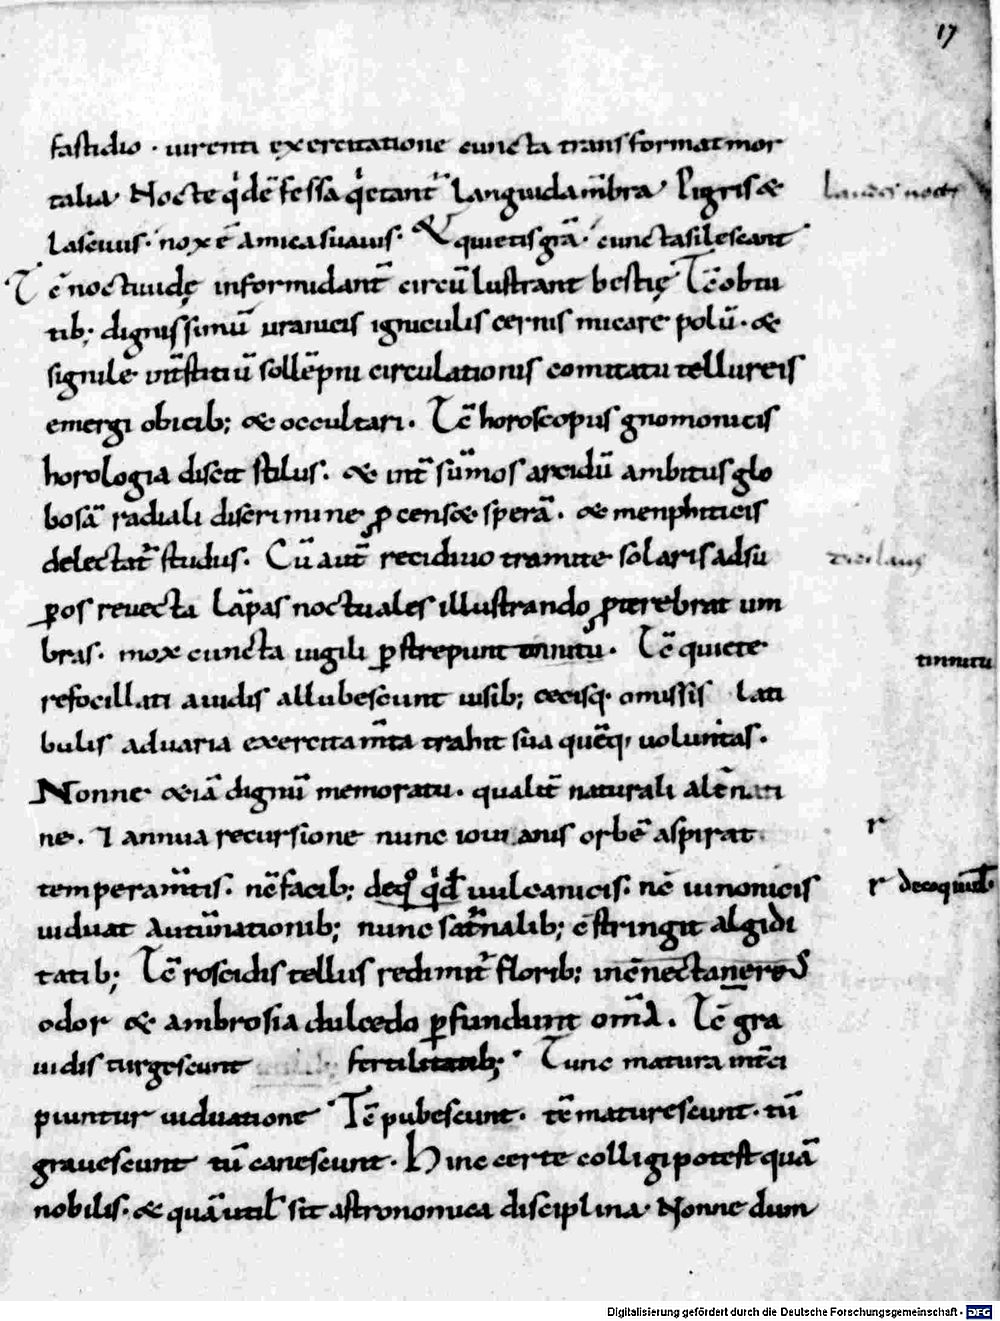 17
fastidio · uirenti exercitatione cuncta transformat mor
talia Nocte q̇ dēfessa q̇etant᷑ Languida m̄bra Pigris &
Lascuus· nox ē amica suauis· & quietis grā· cunctasilescant
Tc̄ noctuudę informidant᷑ circū lustrant bestię Tc̄ obtu
tib; dignissimū uranicis igniculis cernis micare polū· &
signile int᷑stitiū sollēpni circulationis comitatu tellureis
emergi obicib; & occultari. Tc̄ horoscopus gnomonicis
horologia discit stilus. & int᷑ sūmos arcidū ambitus glo
bosā radiali discrimine ꝓcens& sperā. & menphiticis
delectat᷑ studiis. Cū aut̄ recidiuo tramite solaris adsu
ꝑos reuecta Lāpas noctuales illustrando ꝓterebrat um
bras. mox cuncta uigili ꝑstrepunt tinnitu. Tc̄ quiete
tinnitu
refocillati auidis allubescunt uisib; cecisq· omissis lati
bulis aduaria exercitam̄ta trahit sua quēq; uoluntas.
Nonne &iā dignū memoratu. qualit᷑ naturali alt̄nati
ne. 7 annua recursione nunc ioui anis orbē aspirat
r
temperam̄tis. nc̄ facib; deqͦ qd̄ uulcanicis. nc̄ uinonicis
r decoquid
uiduat Autūnationib; nunc sat᷑nalib; c̄stringit algidi
tatib; Tc̄ roscidis tellus redimit᷑ florib;
odor & ambrosia dulcedo ꝑfundunt om̄a. Tc̄ gra
uidis turgescunt fertilitatib; Tunc matura int᷑ci
piuntur uiduatione Tc̄ pubescunt. tc̄ maturescunt. tū
grauescunt tū canescunt. Hinc certe colligi potest quā
nobilis. & quā util᷑ sit astronomica disciplina Nonne dum
Digitalisierung gefördert durch die Deutsche Forschungsgemeinschaft - DFG